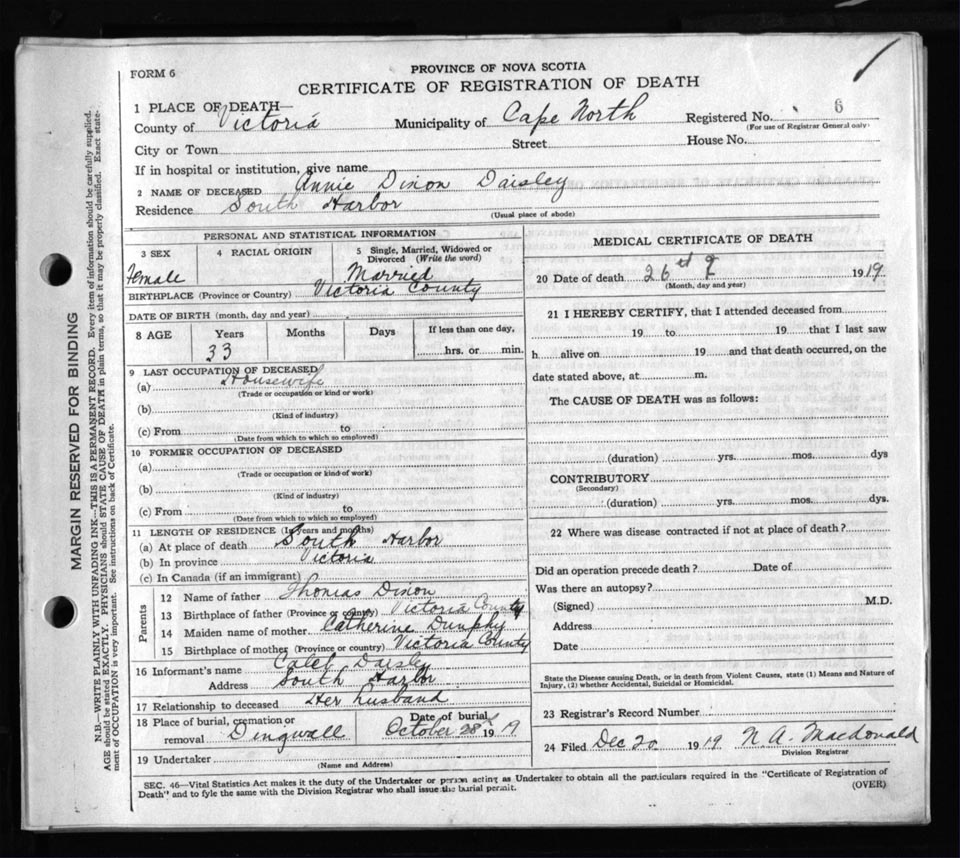 PROVINCE OF NOVA SCOTIA
FORM 6
CERTIFICATE OF REGISTRATION OF DEATH
1 PLACE OF DEATH—
County of Victoria Municipality of Cape North Registered No. 6
(For use of Registrar General only)
City or Town Street House No.
If in hospital or institution, give name
2 NAME OF DECEASED Annie Dixon Daisley
Residence South Harbor
(Usual place of abode)
PERSONAL AND STATISTICAL INFORMATION
3 SEX 4 RACIAL ORIGIN 5 Single, Married, Widowed or Divorced (Write the word)
Female Married
BIRTHPLACE (Province or Country) Victoria County
DATE OF BIRTH (month, day and year)
8 AGE Years Months Days If less than one day,
33 hrs. or min.
9 LAST OCCUPATION OF DECEASED
(a) Housewife
(Trade or occupation or kind or work)
(b)
(Kind of industry)
(c) From to
(Date from which to which so employed)
10 FORMER OCCUPATION OF DECEASED
(a)
(Trade or occupation or kind of work)
(b)
(Kind of industry)
(c) From to
(Date from which to which so employed)
11 LENGTH OF RESIDENCE (In years and months)
(a) At place of death South Harbor
(b) In province Victoria
(c) In Canada (if an immigrant)
Parents
12 Name of father Thomas Dixon
13 Birthplace of father (Province or country) Victoria County
14 Maiden name of mother Catherine Dunphy
15 Birthplace of mother (Province or country) Victoria County
16 Informant's name Caleb Daisley
Address South Harbor
17 Relationship to deceased Her husband
18 Place of burial, cremation or removal Dingwall
Date of burial October 28 1919
19 Undertaker
(Name and Address)
MEDICAL CERTIFICATE OF DEATH
20 Date of death 26 1919.
(Month, day and year)
21 I HEREBY CERTIFY, that I attended deceased from
19 to 19 that I last saw
h alive on 19 and that death occurred, on the
date stated above, at m.
The CAUSE OF DEATH was as follows:
(duration) yrs. mos. dys
CONTRIBUTORY
(Secondary)
(duration) yrs. mos. dys.
22 Where was disease contracted if not at place of death?
Did an operation precede death? Date of
Was there an autopsy?
(Signed) M.D.
Address
Date
State the Disease causing Death, or in death from Violent Causes, state (1) Means and Nature of
Injury, (2) whether Accidental, Suicidal or Homicidal.
23 Registrar's Record Number
24 Filed Dec 20 1919 N. A. Macdonald
Division Registrar
SEC. 46—Vital Statistics Act makes it the duty of the Undertaker or person acting as Undertaker to obtain all the particulars required in the "Certificate of Registration of
Death" and to fyle the same with the Division Registrar who shall issue the burial permit.
(OVER)
MARGIN RESERVED FOR BINDING
N.B.—WRITE PLAINLY WITH UNFADING INK—THIS IS A PERMANENT RECORD. Every item of information should be carefully supplied.
AGE should be stated EXACTLY. PHYSICIANS should STATE CAUSE OF DEATH in plain terms, so that it may be properly classified. Exact statement of OCCUPATION is very important. See instructions on back of Certificate.